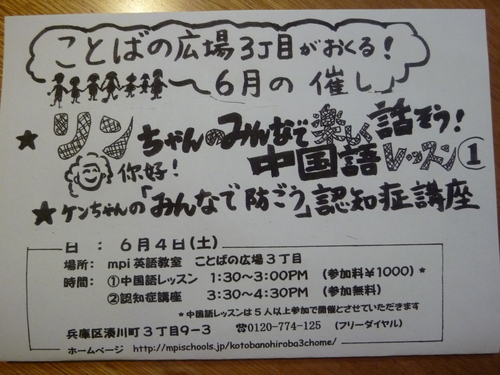 ことばの広場3丁目がおくる!
6月の催し
★リンちゃんのみんなで楽しく話そう!
中国語レッスン①
你好!
★ケンちゃんの「みんなで防ごう」認知症講座
日 : 6月4日(土)
場所: mpi英語教室 ことばの広場3丁目
時間: ①中国語レッスン 1:30~3:00PM (参加料¥1000)*
②認知症講座 3:30~4:30PM (参加無料)
*中国語レッスンは5人以上参加で開催とさせていただきます
兵庫区湊川町3丁目9-3 ☎0120-774-125 (フリーダイヤル)
ホームページ http://mpischools.jp/kotobanohiroba3chome/